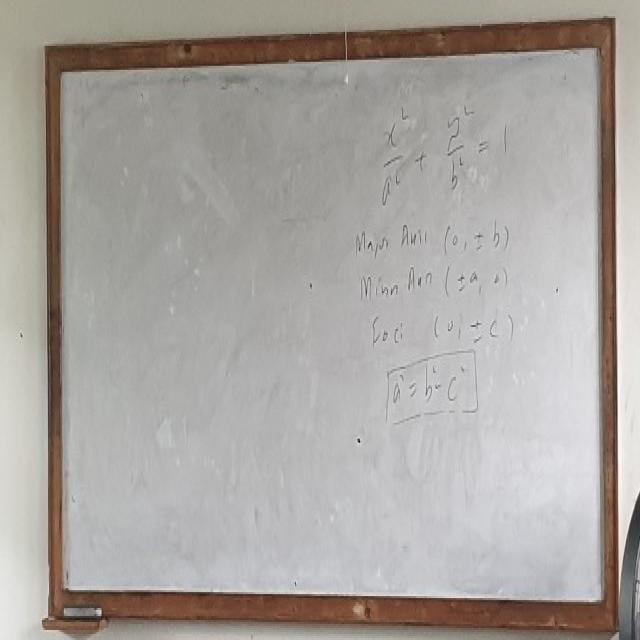 x²/a² + y²/b² = 1
Major Axis (0, ±b)
Minor Axis (±a, 0)
Foci (0, ±c)
a² = b² - c²